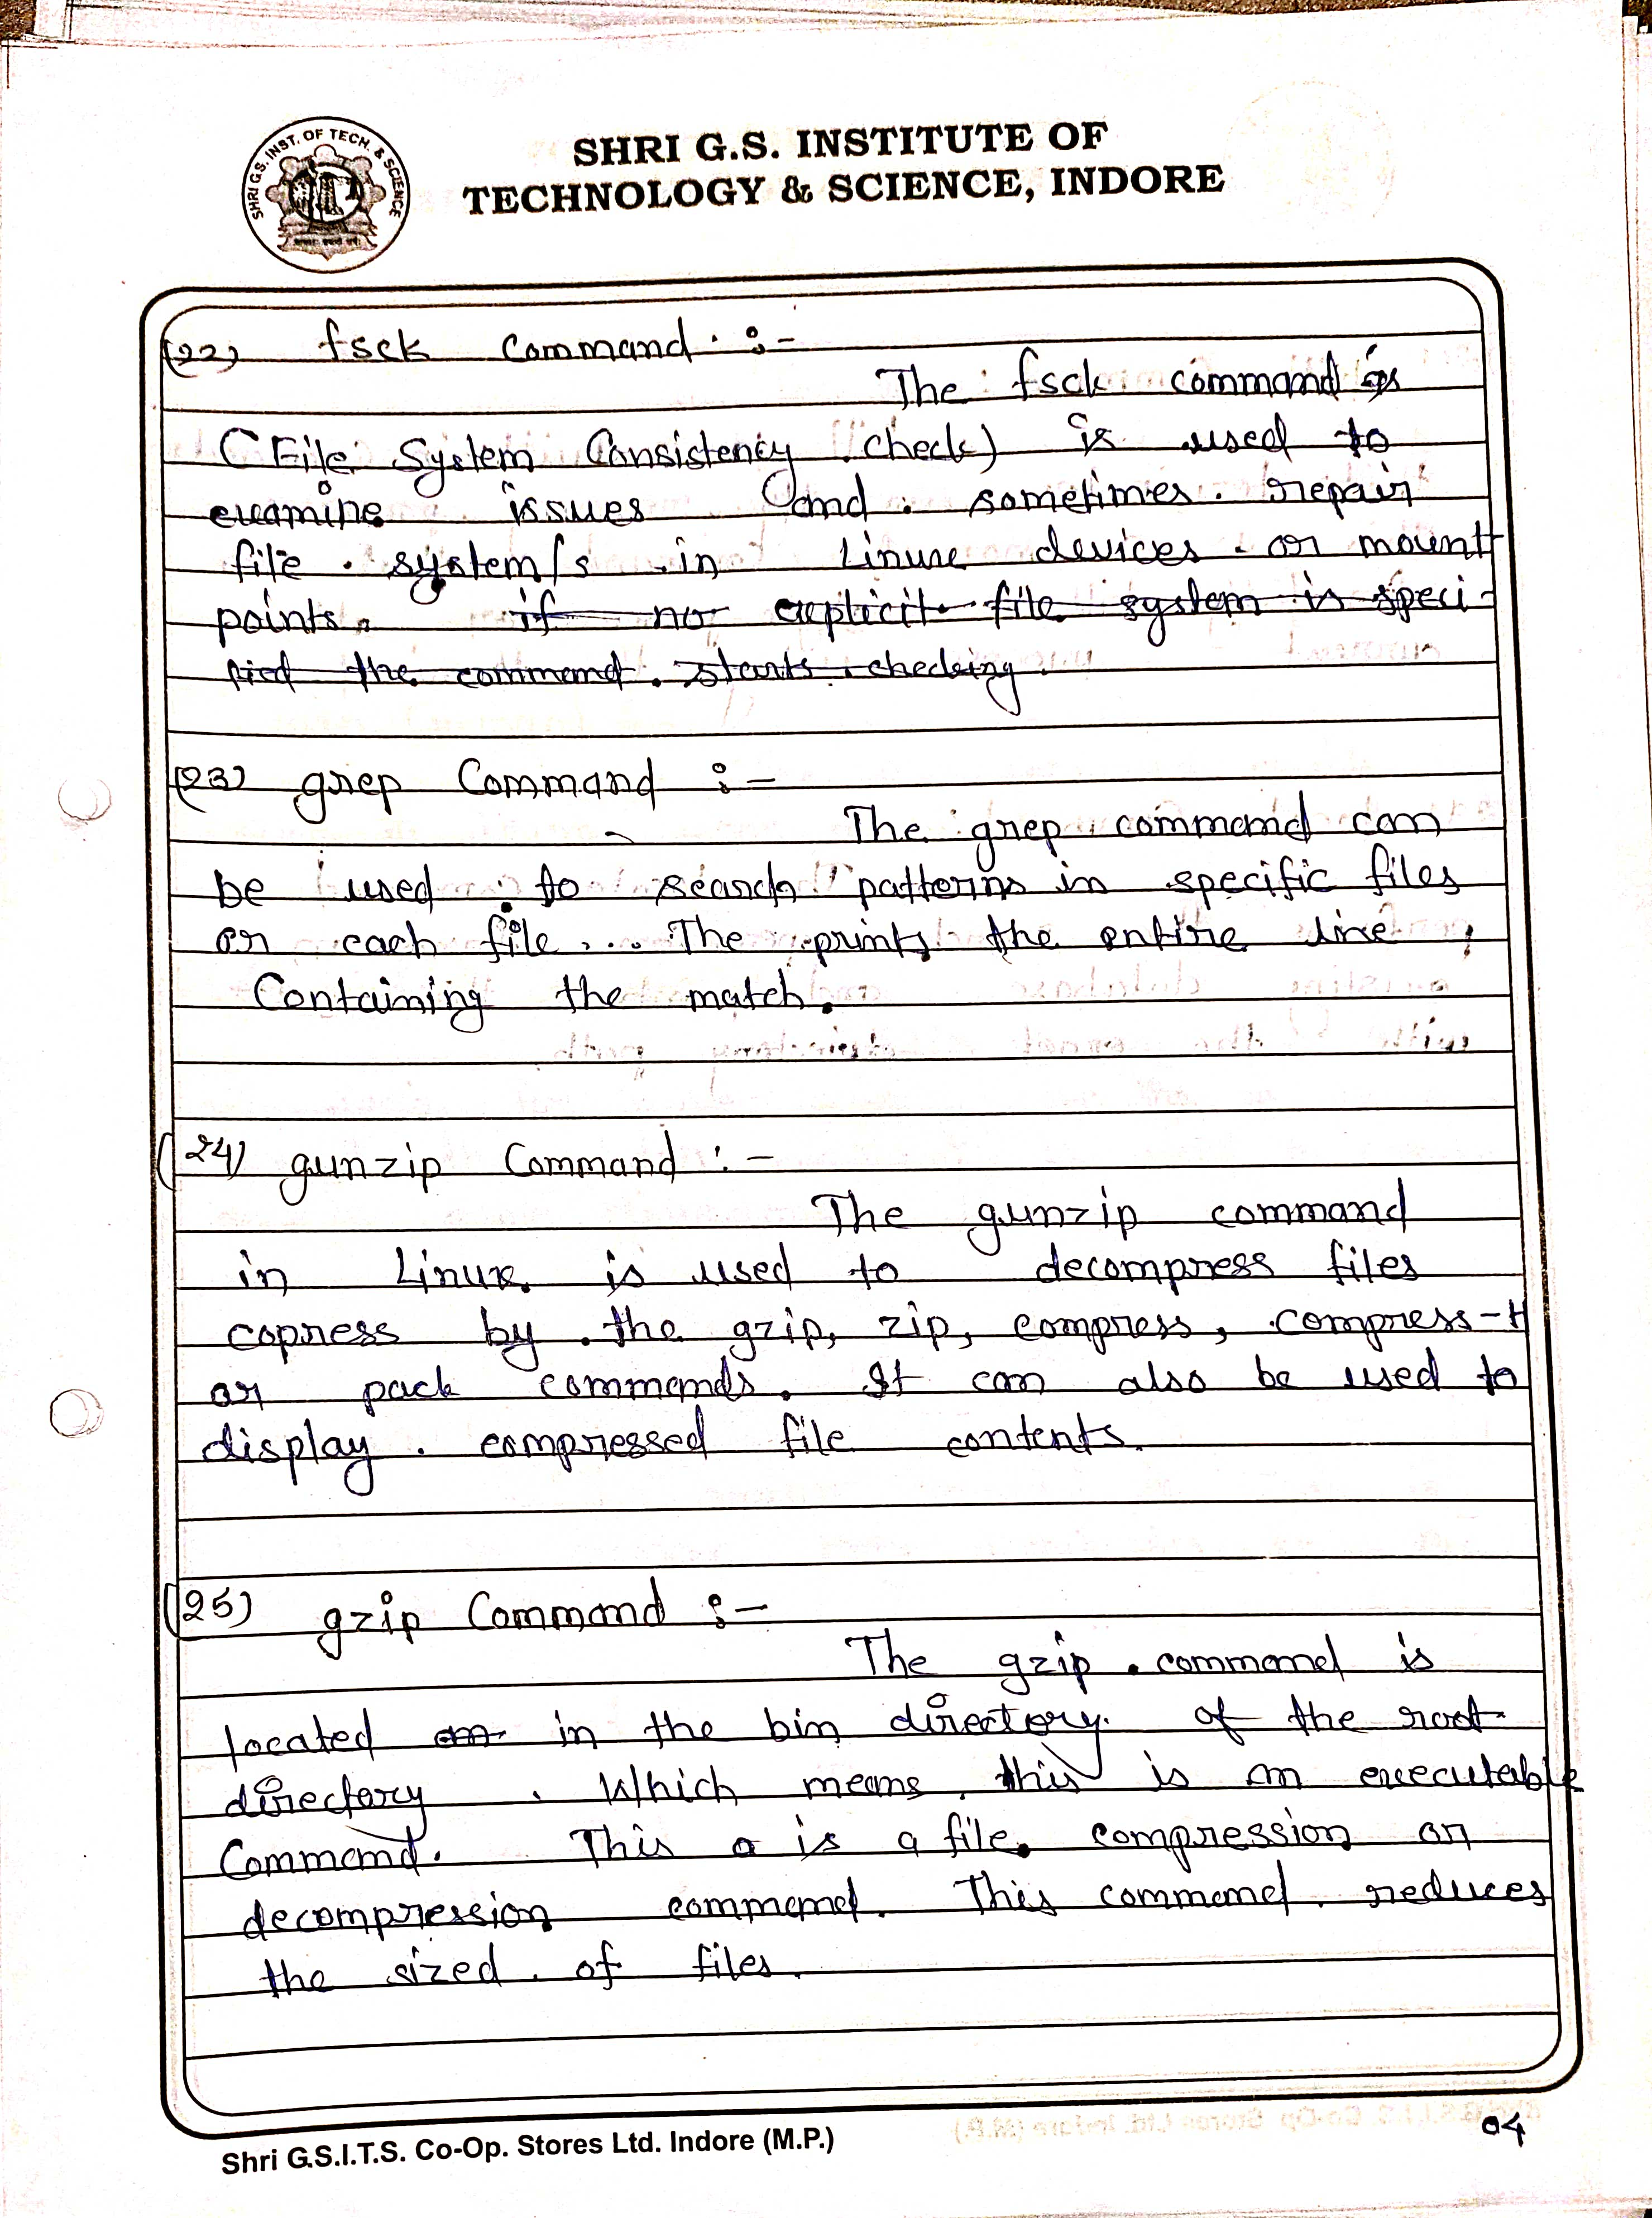 SHRI G.S. INST. OF TECH. & SCIENCE
SHRI G.S. INSTITUTE OF
TECHNOLOGY & SCIENCE, INDORE
(22) fsck Command :-
The fsck command
(File System Consistency check) is used to
examine issues and sometimes repair
file system/s in Linux devices or mount
points. if no explicit file system is speci-
fied the command starts checking
(23) grep Command :-
The grep command can
be used to search patterns in specific files
or each file... The prints the entire line
Containing the match.
(24) gunzip Command :-
The gunzip command
in Linux is used to decompress files
copress by the gzip, zip, compress, compress-H
or pack commands. It can also be used to
display compressed file contents.
(25) gzip Command :-
The gzip command is
located in the bin directory of the root
directory. Which means this is an executable
Command. This a is a file compression or
decompression command. This command reduces
the sized of files.
Shri G.S.I.T.S. Co-Op. Stores Ltd. Indore (M.P.)
04